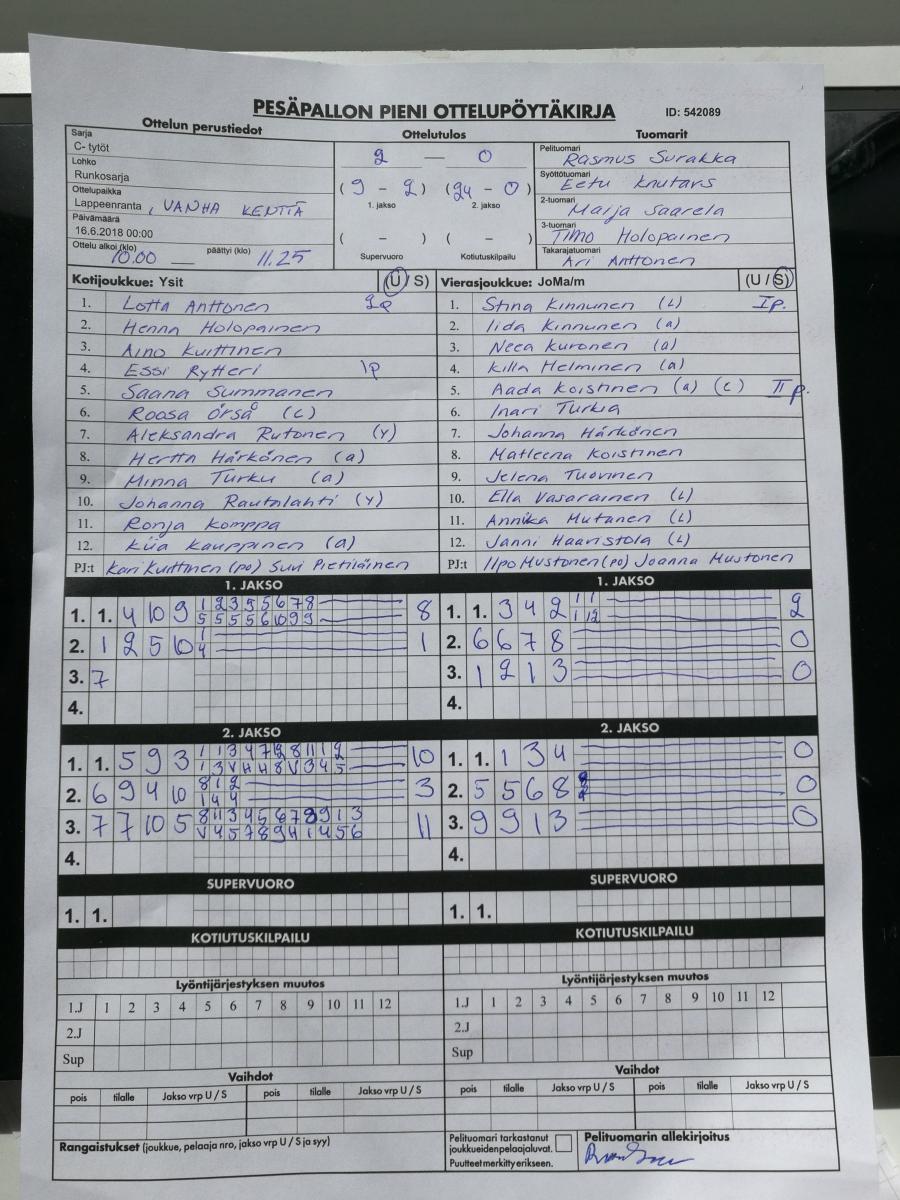 PESÄPALLON PIENI OTTELUPÖYTÄKIRJA
ID: 542089
Ottelun perustiedot
Sarja
C- tytöt
Lohko
Runkosarja
Ottelupaikka
Lappeenranta , VANHA KENTTÄ
Päivämäärä
16.6.2018 00:00
Ottelu alkoi (klo) 10.00 päättyi (klo) 11.25
Ottelutulos
2 — 0
( 9 - 2 ) (24 - 0)
1. jakso 2. jakso
( - ) ( - )
Supervuoro Kotiutuskilpailu
Tuomarit
Pelituomari
Rasmus Surakka
Syöttötuomari
Eetu Knutars
2-tuomari
Marja Saarela
3-tuomari
TIMO Holopainen
Takarajatuomari
Ari Anttonen
Kotijoukkue: Ysit (U / S)
1. Lotta Anttonen 2p
2. Henna Holopainen
3. Aino Kuittinen
4. Essi Rytteri 1p
5. Saana Summanen
6. Roosa Örså (L)
7. Aleksandra Rutonen (Y)
8. Hertta Härkönen (a)
9. Minna Turku (a)
10. Johanna Rautalahti (Y)
11. Ronja Komppa
12. Kiia Kauppinen (a)
PJ:t Kari Kuittinen (po) Suvi Pietiläinen
Vierasjoukkue: JoMa/m (U / S)
1. Stina Kinnunen (L) I p.
2. Iida Kinnunen (a)
3. Neea Kuronen (a)
4. Killa Helminen (a)
5. Aada Koistinen (a) (c) II p.
6. Inari Turkia
7. Johanna Härkönen
8. Matleena Koistinen
9. Jelena Tuovinen
10. Ella Vasarainen (L)
11. Annika Mutanen (L)
12. Janni Haaristola (L)
PJ:t Ilpo Mustonen (po) Joanna Mustonen
1. JAKSO
1. 1. 4 10 9 1 2 3 5 5 6 7 8 8
5 5 5 5 6 10 9 9
2. 1 2 5 10 1 1
4
3. 7
4.
1. JAKSO
1. 1. 3 4 2 1 1 2
1 12
2. 6 6 7 8 0
3. 1 2 1 3 0
4.
2. JAKSO
1. 1. 5 9 3 10
2. 6 9 4 10 8 1 2 3
1 4 4
3. 7 7 10 5 11
4.
2. JAKSO
1. 1. 1 3 4 0
2. 5 5 6 8 0
3. 9 9 1 3 0
4.
SUPERVUORO
1. 1.
SUPERVUORO
1. 1.
KOTIUTUSKILPAILU
KOTIUTUSKILPAILU
Lyöntijärjestyksen muutos
1.J 1 2 3 4 5 6 7 8 9 10 11 12
2.J
Sup
Lyöntijärjestyksen muutos
1.J 1 2 3 4 5 6 7 8 9 10 11 12
2.J
Sup
Vaihdot
pois tilalle Jakso vrp U / S pois tilalle Jakso vrp U / S
Vaihdot
pois tilalle Jakso vrp U / S pois tilalle Jakso vrp U / S
Rangaistukset (joukkue, pelaaja nro, jakso vrp U / S ja syy)
Pelituomari tarkastanut
joukkueiden pelaajaluvat.
Puutteet merkitty erikseen.
Pelituomarin allekirjoitus